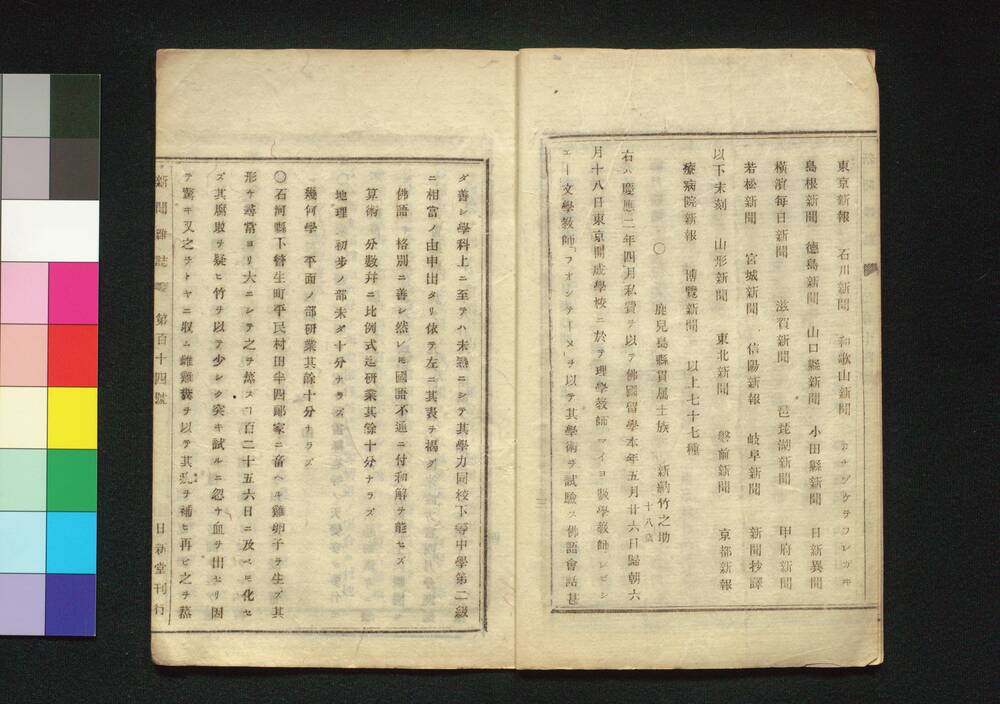 東京新報 石川新聞 和歌山新聞 カナヅケヲフレガキ
島根新聞 徳島新聞 山口縣新聞 小田縣新聞 日新異聞
横濱毎日新聞 滋賀新聞 琵琶湖新聞 甲府新聞
若松新聞 宮城新聞 信陽新報 岐阜新聞 新聞抄譯
以下未刻 山形新聞 東北新聞 磐前新聞 京都新報
療病院新報 博覽新聞 以上七十七種
〇 鹿兒島縣貫属士族 新納竹之助 十八歳
右ハ慶應二年四月私費ヲ以テ佛國留學本年五月廿六日歸朝六
月十八日東京開成學校ニ於テ理學教師マイヨ 數學教師レピシ
エー文學教師フオンテーヌヲ以テ其學術ヲ試驗ス佛語會話甚
ダ善シ學科上ニ至テハ未熟ニシテ其學力同校下等中學第二級
ニ相當ノ由申出タリ依テ左ニ其表ヲ揭グ
佛語 格別ニ善シ然レ𪜈國語不通ニ付和解ヲ能セズ
算術 分數幷ニ比例式迄研業其餘十分ナラズ
地理 初歩ノ部未ダ十分ナラズ
幾何學 平面ノ部研業其餘十分ナラズ
〇石河縣下 生町平民村田半四郎家ニ畜ヘル雞卵子ヲ生ズ其
形チ尋常ヨリ大ニシテ之ヲ蒸スヿ百二十五六日ニ及ベ𪜈化セ
ズ其腐敗ヲ疑ヒ竹ヲ以テ少シク突キ試ルニ忽チ血ヲ出セリ因
テ驚キ又之ヲトヤニ収ム雌雞 ヲ以テ其 ヲ補ヒ再ビ之ヲ蒸
新聞雜誌 第百十四號 日新堂刊行